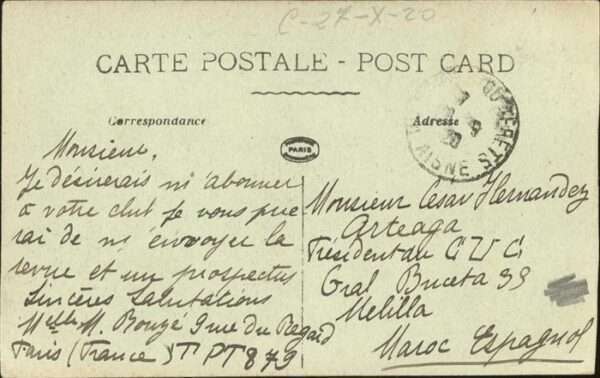 C-27-X-20
CARTE POSTALE - POST CARD
Correspondance
Adresse
PARIS
Monsieur,
Je désirerais m'abonner
à votre club je vous prie
rai de m'envoyer la
revue et un prospectus
Sincères Salutations
Melle M. Bouzé 9 rue du Regard
Paris (France) T PT 879
Monsieur Cesar Hernandez
Arteaga
Président du C U C
Gral Buceta 33
Melilla
Maroc Espagnol